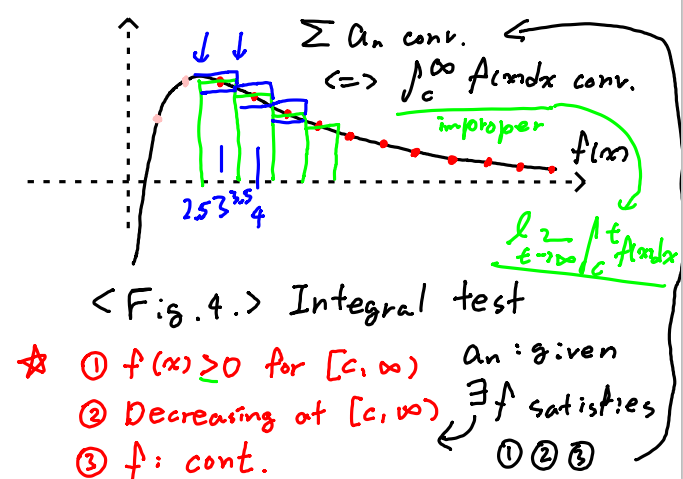 Σ an conv.
<=> ∫c^∞ f(x)dx conv.
improper
f(x)
2.5 3 3.5 4
lim t→∞ ∫c^t f(x)dx
<Fig.4.> Integral test
☆ ① f(x) > 0 for [c, ∞)
② Decreasing at [c, ∞)
③ f : cont.
an : given
∃f satisfies
① ② ③